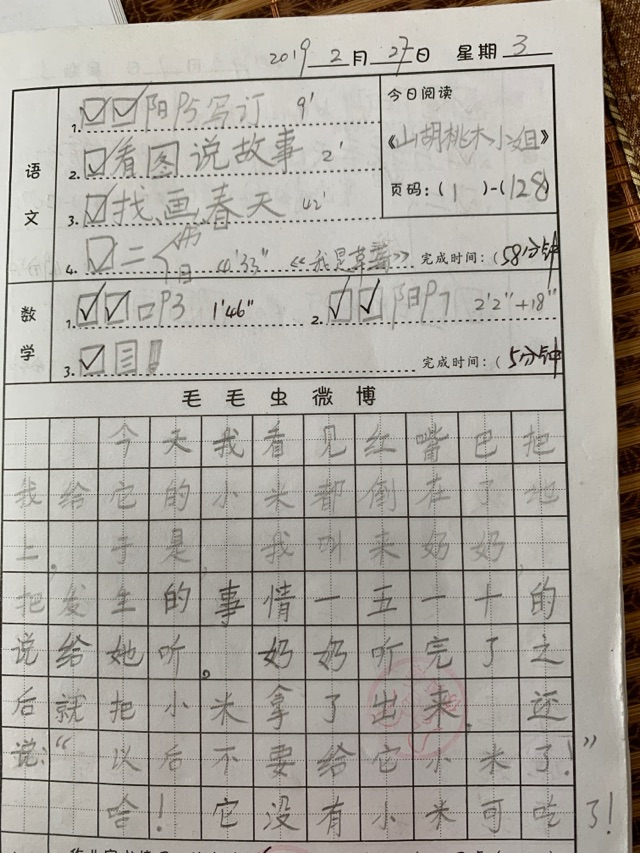 2019 2月 27日 星期 3
语文
1. 阳P5写订 9'
2. 看图说故事 2'
3. 找画春天 42'
4. 二 4'33" 《我是草莓》 完成时间：(58分钟
今日阅读
《山胡桃木小姐》
页码：( 1 )-(128)
数学
1. 口P3 1'46" 2. 阳P7 2'2"+18"
3. 完成时间：( 5分钟
毛毛虫微博
今天我看见红嘴巴把
我给它的小米都倒在了地
上，于是，我叫来奶奶，
把发生的事情一五一十的
说给她听。奶奶听完了之
后就把小米拿了出来，还
说：“以后不要给它小米了！”
哈！它没有小米可吃了！